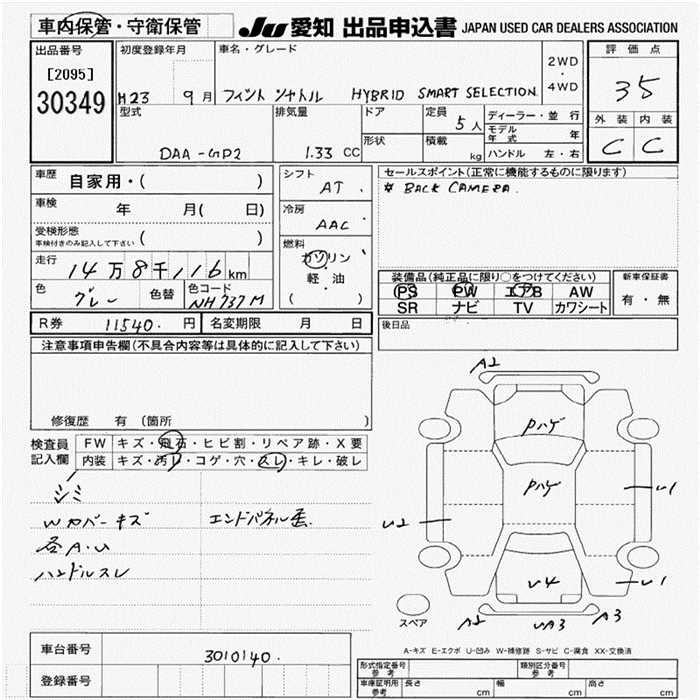 車内保管・守衛保管
JU 愛知 出品申込書 JAPAN USED CAR DEALERS ASSOCIATION
出品番号
[2095]
30349
初度登録年月
H23 9月
車名・グレード
フィット シャトル HYBRID SMART SELECTION
2WD
・
4WD
評価点
35
外装 内装
C C
型式
DAA-GP2
排気量
1.33 CC
ドア
形状
定員
5人
積載
kg
ディーラー・並行
モデル年式 年
ハンドル 左・右
車歴 自家用・( )
車検 年 月( 日)
受検形態
車検付きのみ記入して下さい ( )
走行 14万8千116km
色 グレー 色替 色コード NH737M
シフト
AT
冷房
AAC
燃料
ガソリン
軽・油
( )
セールスポイント(正常に機能するものに限ります)
# BACK CAMERA.
装備品(純正品に限り○をつけてください)
PS PW エアB AW
SR ナビ TV カワシート
新車保証書
有・無
R券 11540. 円 名変期限 月 日
後日品
注意事項申告欄(不具合内容等は具体的に記入して下さい)
修復歴 有 (箇所 )
検査員
記入欄
FW キズ・飛石・ヒビ割・リペア跡・X要
内装 キズ・汚レ・コゲ・穴・スレ・キレ・破レ
シミ
Wカバーキズ エンドパネル歪.
各A.U
ハンドルスレ
A2
Pハゲ
Pハゲ
U2
U1
U4
U1
A2
UA3
A3
スペア
A-キズ E-エクボ U-凹み W-補修跡 S-サビ C-腐食 XX-交換済
車台番号 3010140.
登録番号
形式指定番号 参考 類別区分番号 参考
車庫証明用 参考 長さ cm 幅 cm 高さ cm